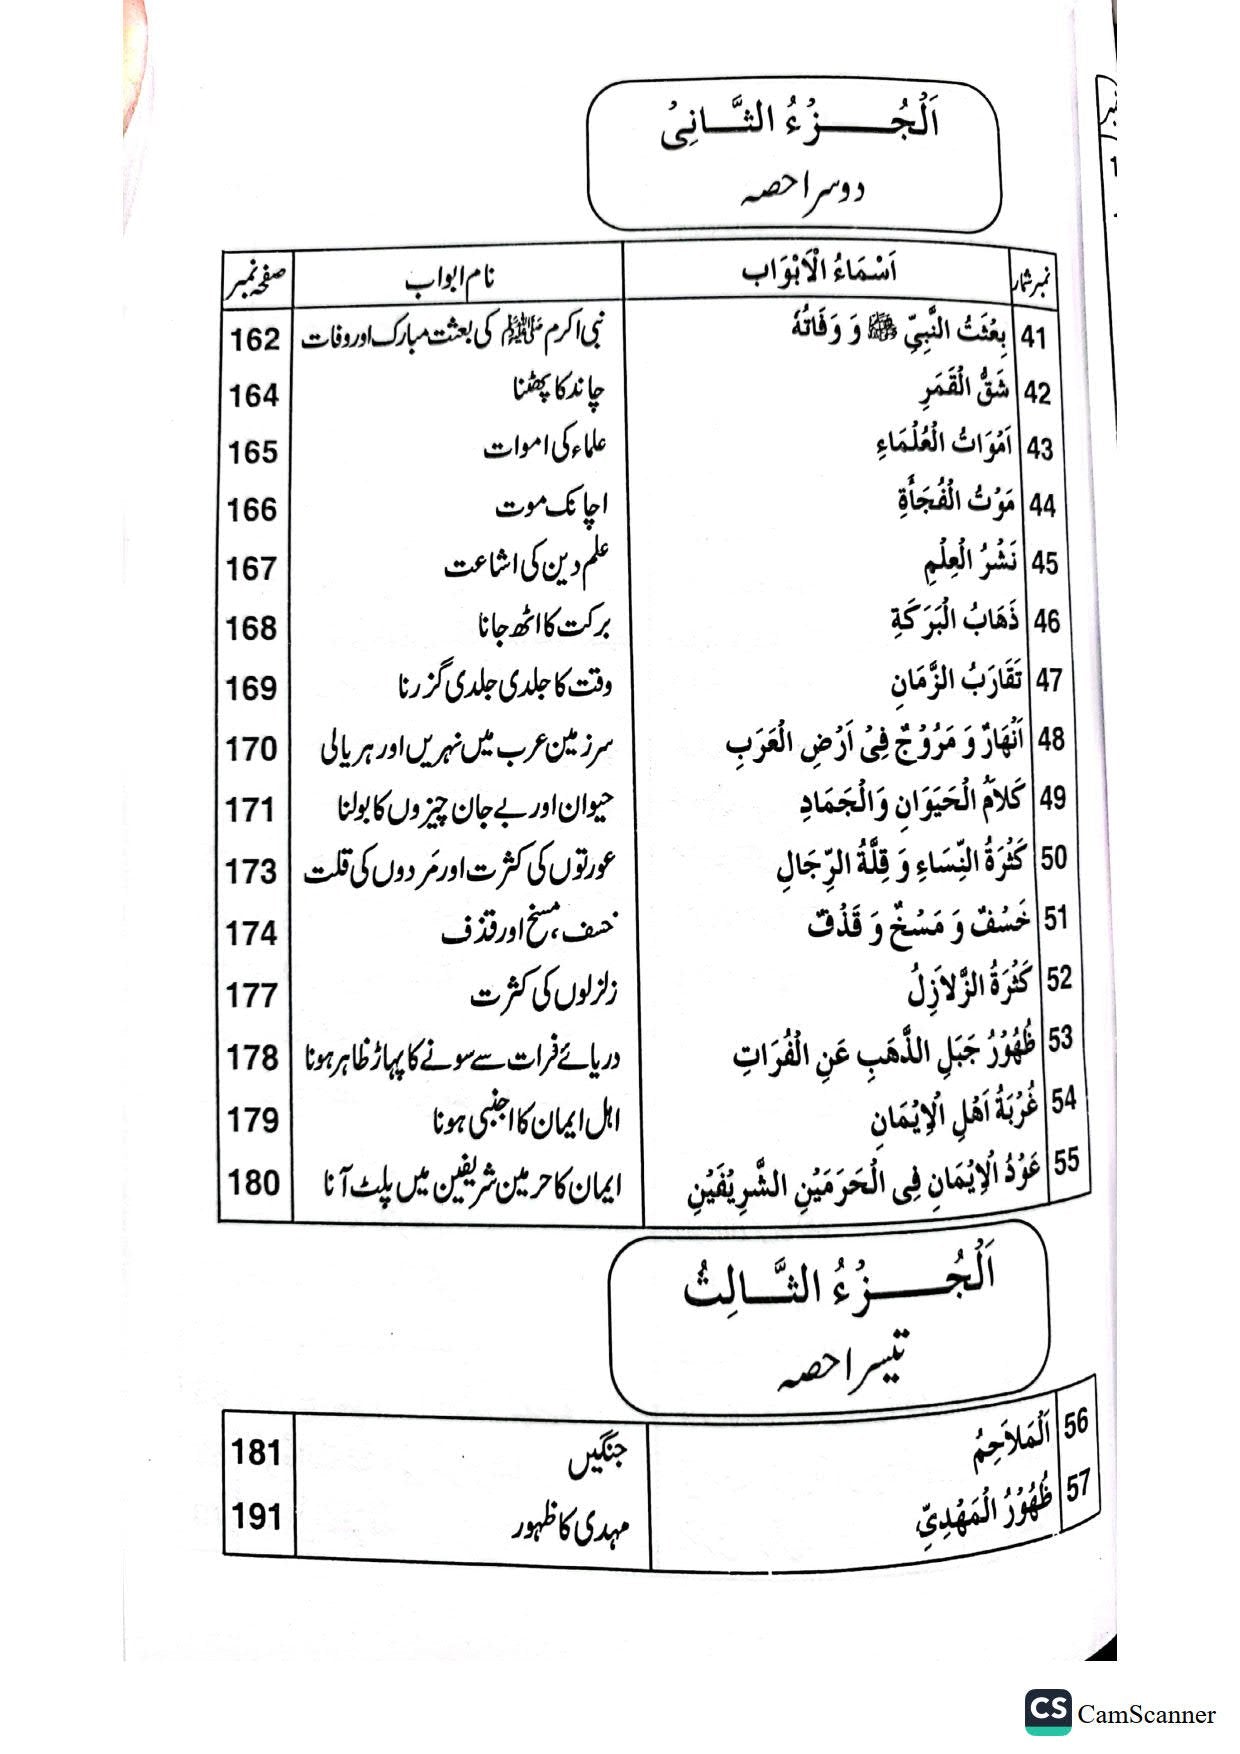 اَلْجُزْءُ الثَّانِیْ
دوسرا حصہ
نمبر شمار اَسْمَاءُ الْاَبْوَاب نام ابواب صفحہ نمبر
41 بِعْثَتُ النَّبِیِّ ﷺ وَ وَفَاتُهٗ نبی اکرم ﷺ کی بعثت مبارک اور وفات 162
42 شَقُّ الْقَمَرِ چاند کا پھٹنا 164
43 اَمْوَاتُ الْعُلْمَاءِ علماء کی اموات 165
44 مَوْتُ الْفُجَأَةِ اچانک موت 166
45 نَشْرُ الْعِلْمِ علم دین کی اشاعت 167
46 ذَهَابُ الْبَرَکَةِ برکت کا اٹھ جانا 168
47 تَقَارَبُ الزَّمَانِ وقت کا جلدی جلدی گزرنا 169
48 اَنْهَارٌ وَ مَرُوْجٌ فِیْ اَرْضِ الْعَرَبِ سرزمین عرب میں نہریں اور ہریالی 170
49 کَلَامُ الْحَیَوَانِ وَالْجَمَادِ حیوان اور بے جان چیزوں کا بولنا 171
50 کَثْرَةُ النِّسَاءِ وَ قِلَّةُ الرِّجَالِ عورتوں کی کثرت اور مَردوں کی قلت 173
51 خَسْفٌ وَ مَسْخٌ وَ قَذْفٌ خسف، مسخ اور قذف 174
52 کَثْرَةُ الزَّلَازِلُ زلزلوں کی کثرت 177
53 ظُهُوْرُ جَبَلِ الذَّهَبِ عَنِ الْفُرَاتِ دریائے فرات سے سونے کا پہاڑ ظاہر ہونا 178
54 غُرْبَةُ اَهْلِ الْاِیْمَانِ اہل ایمان کا اجنبی ہونا 179
55 عَوْدُ الْاِیْمَانِ فِی الْحَرَمَیْنِ الشَّرِیْفَیْنِ ایمان کا حرمین شریفین میں پلٹ آنا 180
اَلْجُزْءُ الثَّالِثُ
تیسرا حصہ
56 اَلْمَلَاحِمُ جنگیں 181
57 ظُهُوْرُ الْمَهْدِیِّ مہدی کا ظہور 191
CS CamScanner